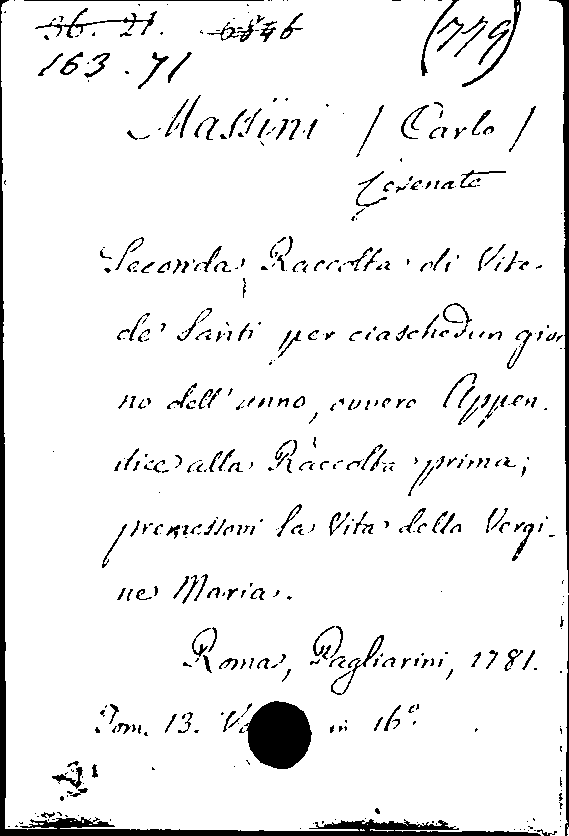 36. 21. 6846 (779)
163.71
Massini / Carlo /
Cesenate
Seconda Raccolta di Vite
de' Santi per ciaschedun gior
no dell'anno, ovvero Appen-
dice alla Raccolta prima;
premessovi la Vita della Vergi-
ne Maria.
Roma, Pagliarini, 1781.
Tom. 13. in 16°.